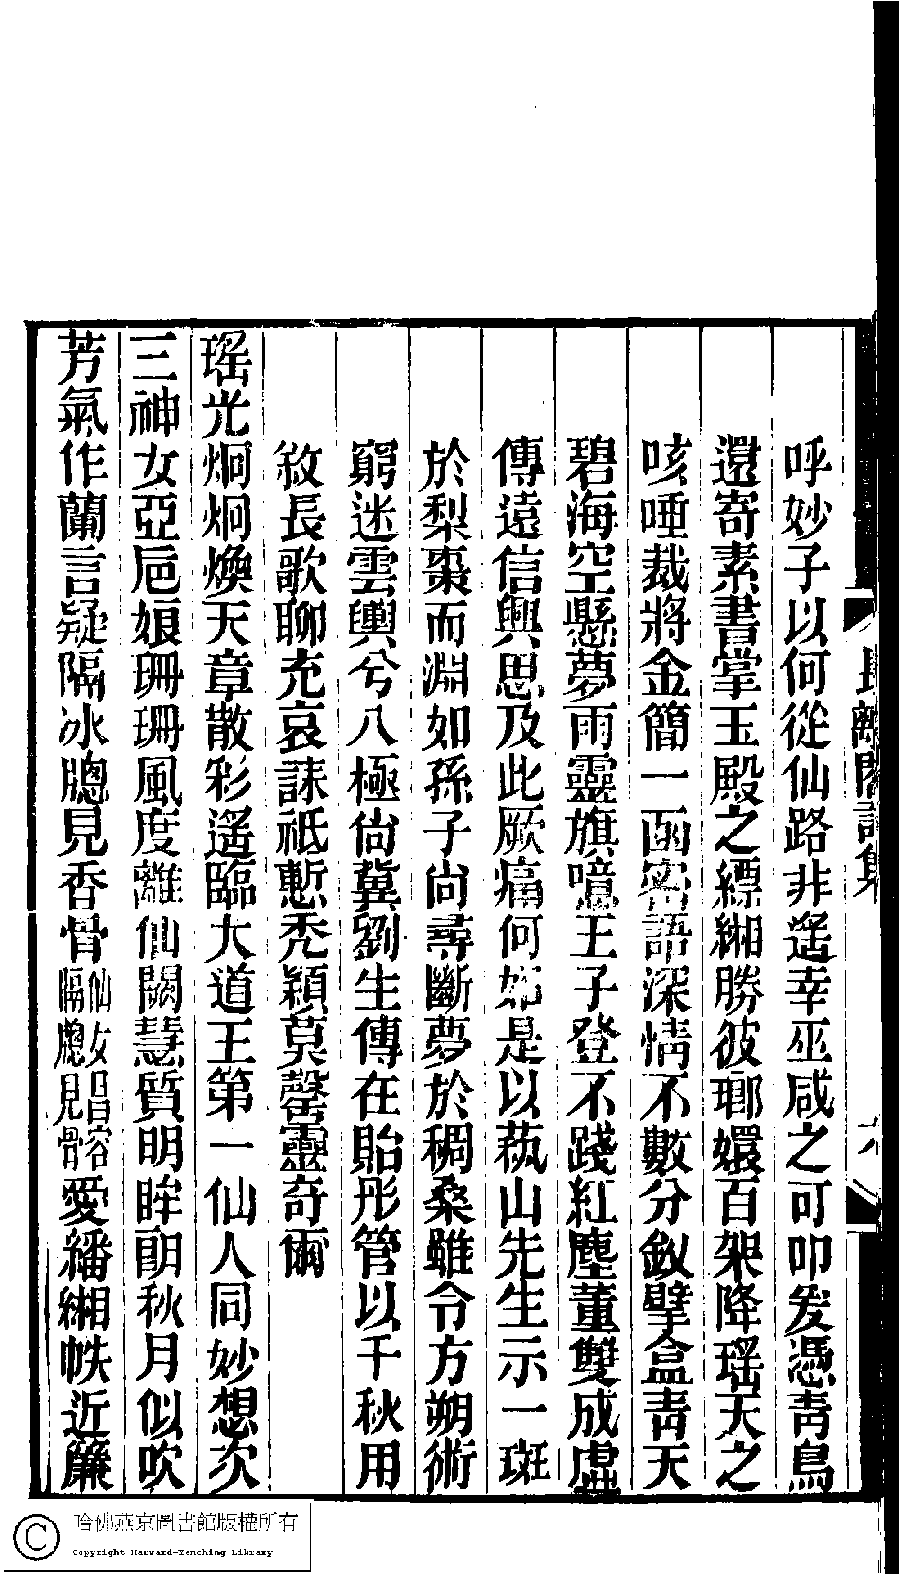 呼妙子以何從仙路非遙幸巫咸之可叩爰憑青鳥
還寄素書掌玉殿之縹緗勝彼瑯嬛百架降瑶天之
咳唾裁將金簡一函密語深情不數分釵擘盒青天
碧海空懸夢雨靈旗噫王子登不踐紅塵董雙成虛
傳遠信興思及此厥痛何如是以蓺山先生示一斑
於梨棗而淵如孫子尙尋斷夢於稠桑雖令方朔術
窮迷雲輿兮八極倘冀劉生傳在貽彤管以千秋用
敘長歌聊充哀誄祗慙禿穎莫罄靈奇爾
瑶光炯炯煥天章散彩遙臨大道王第一仙人同妙想次
三神女亞巵娘珊珊風度離仙闕慧質明眸朗秋月似吹
芳氣作蘭言疑隔冰牕見香骨仙女昌容隔牕見骨愛繙緗帙近簾
長離閣詩集
哈佛燕京圖書館版權所有
Copyright Harvard-Yenching Library